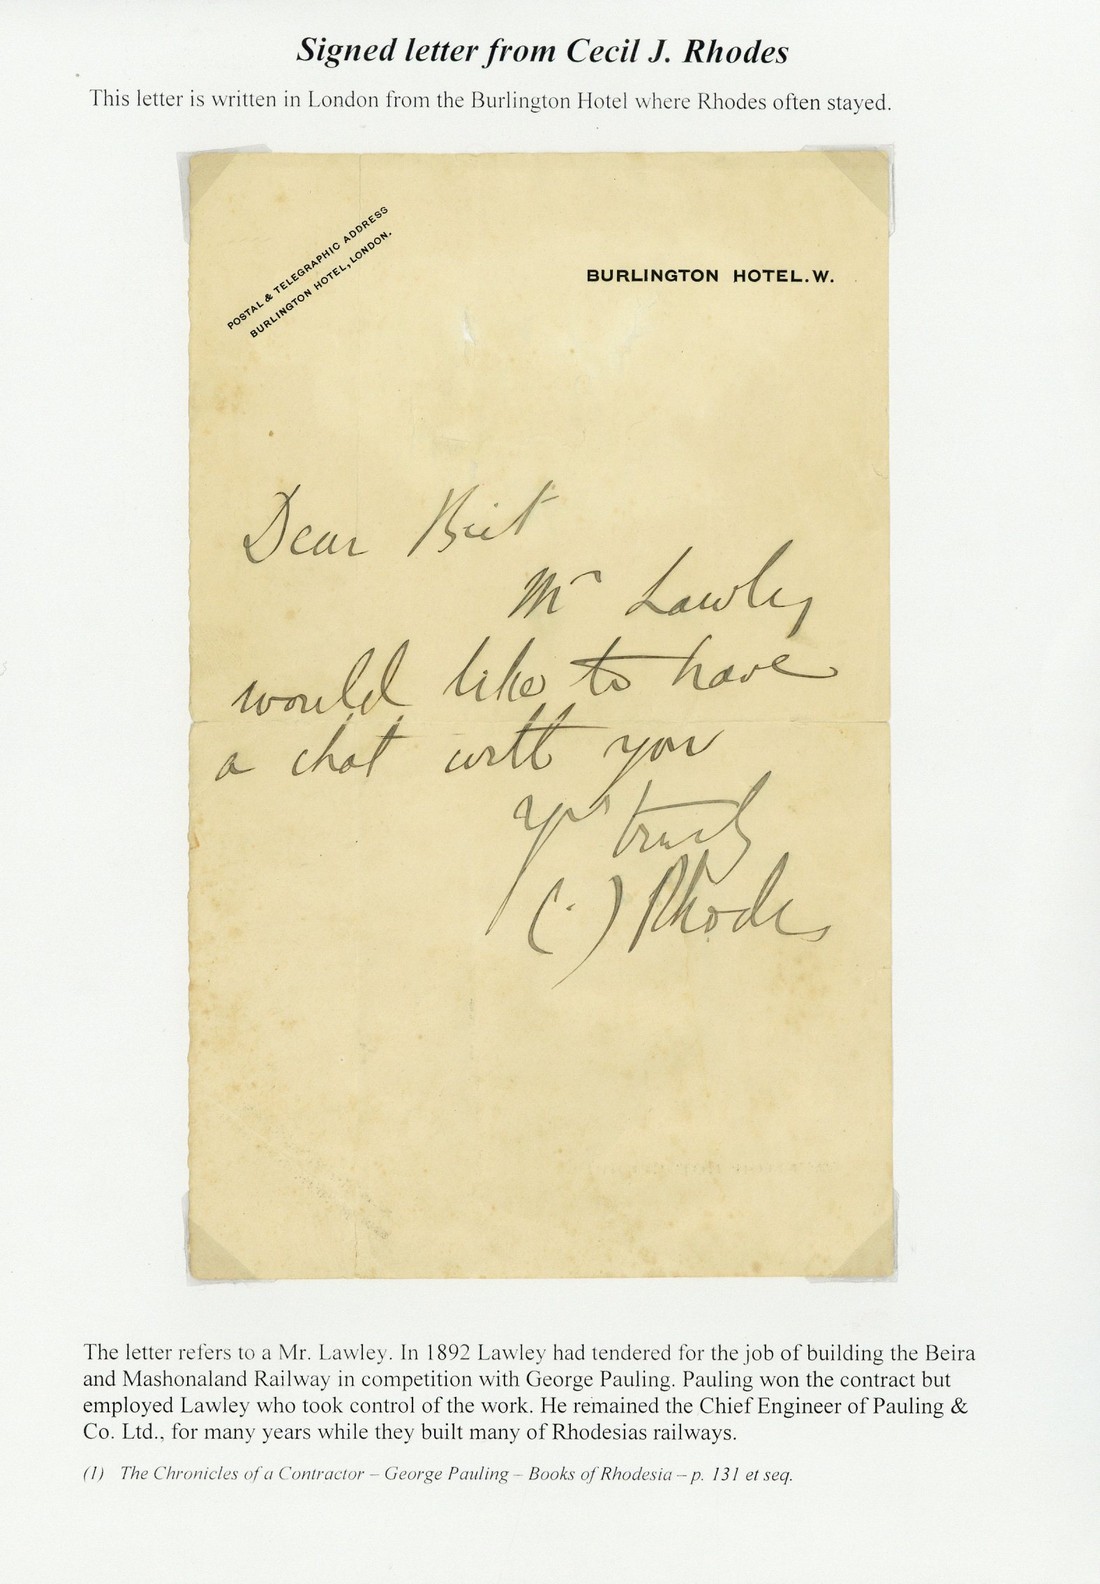 Signed letter from Cecil J. Rhodes
This letter is written in London from the Burlington Hotel where Rhodes often stayed.
POSTAL & TELEGRAPHIC ADDRESS
BURLINGTON HOTEL, LONDON.
BURLINGTON HOTEL. W.
Dear Beit
Mr Lawley
would like to have
a chat with you
Yrs truly
C J Rhodes
The letter refers to a Mr. Lawley. In 1892 Lawley had tendered for the job of building the Beira
and Mashonaland Railway in competition with George Pauling. Pauling won the contract but
employed Lawley who took control of the work. He remained the Chief Engineer of Pauling &
Co. Ltd., for many years while they built many of Rhodesias railways.
(1) The Chronicles of a Contractor – George Pauling – Books of Rhodesia – p. 131 et seq.